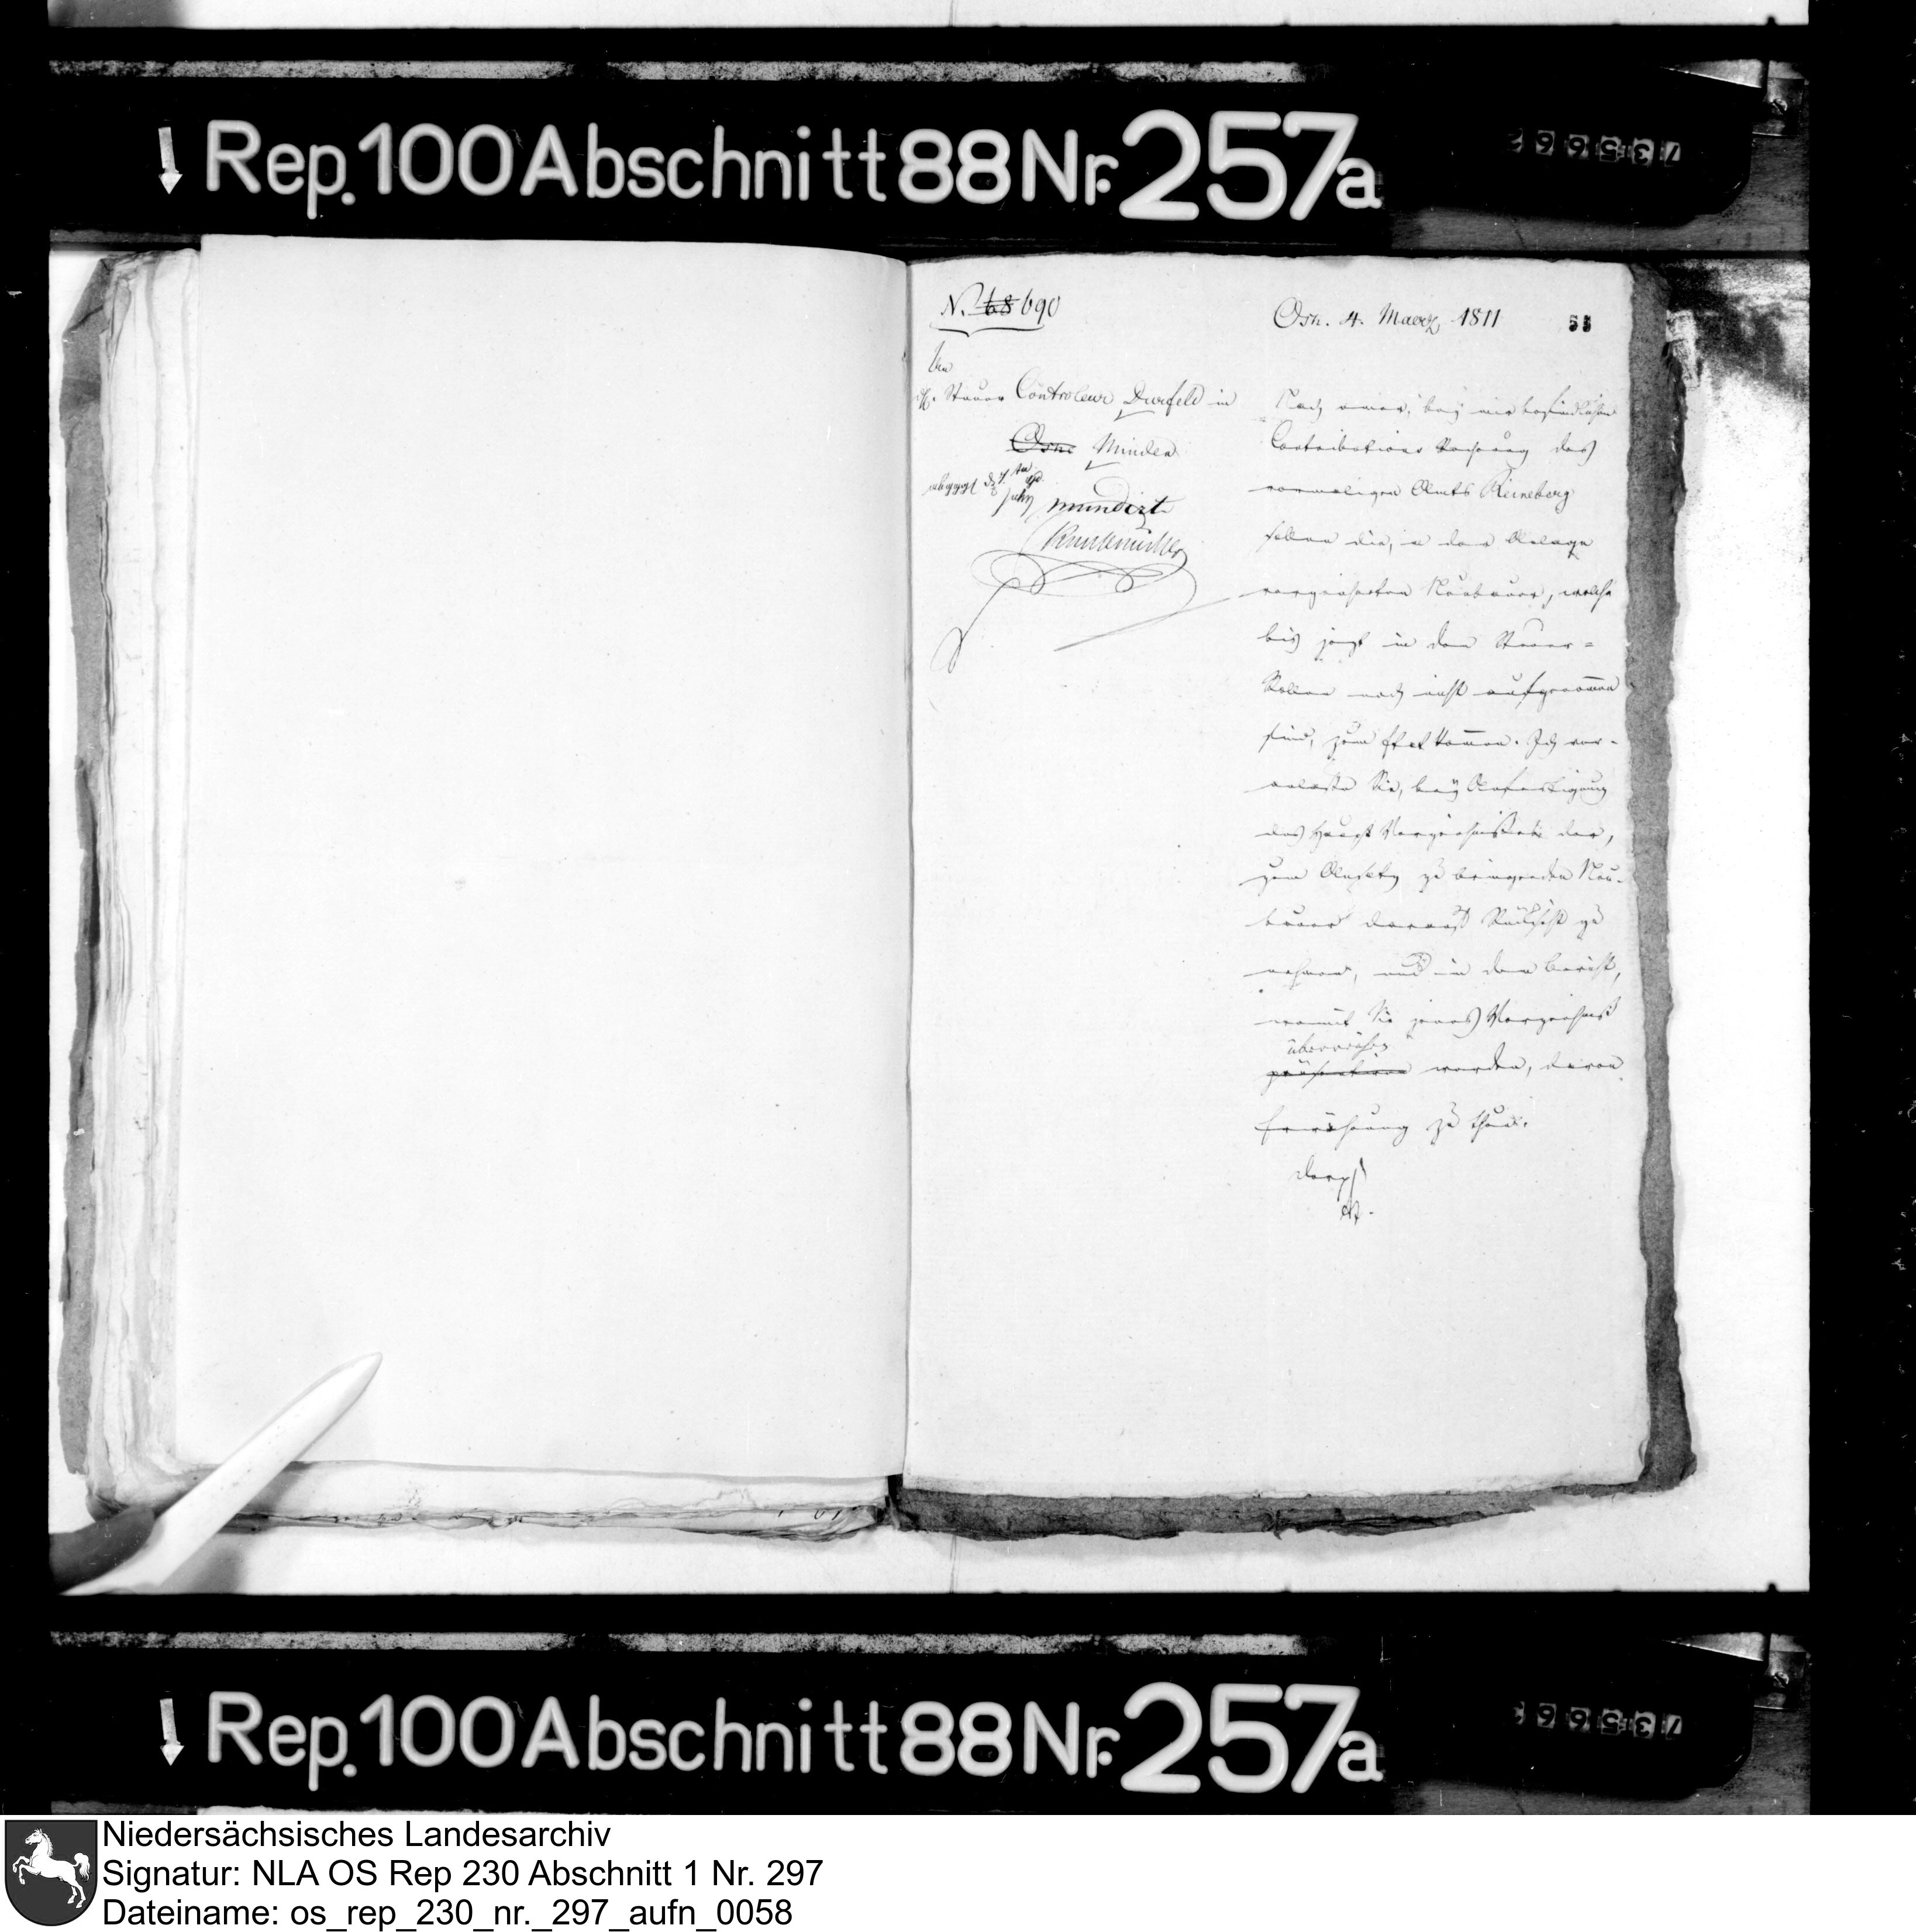 Rep. 100 Abschnitt 88 Nr. 257a
N. 68 690
Osn. 4. Maerz 1811
55
An
H. Steuer Controleur Durfeld in
Osn. Minden
mundirt
Nach einer, bey mir befindlichen
Contributions Rechnung des
vormaligen Amts Reineberg
sollen die, in der Anlage
verzeichneten Neubauer, welche
bis jezt in den Steuer=
Rollen noch nicht aufgenommen
sind, zum Etat kommen. Ich ver-
anlasse Sie, bey Anfertigung
des Haupt Verzeichnisses der,
zum Ansatz zu bringenden Neu-
bauer darauf Rücksicht zu
nehmen, und in dem Bericht,
womit Sie jenes Verzeichniß
überreichen
präsentiren werden, davon
Erwähnung zu thun.
Rep. 100 Abschnitt 88 Nr. 257a
Niedersächsisches Landesarchiv
Signatur: NLA OS Rep 230 Abschnitt 1 Nr. 297
Dateiname: os_rep_230_nr._297_aufn_0058